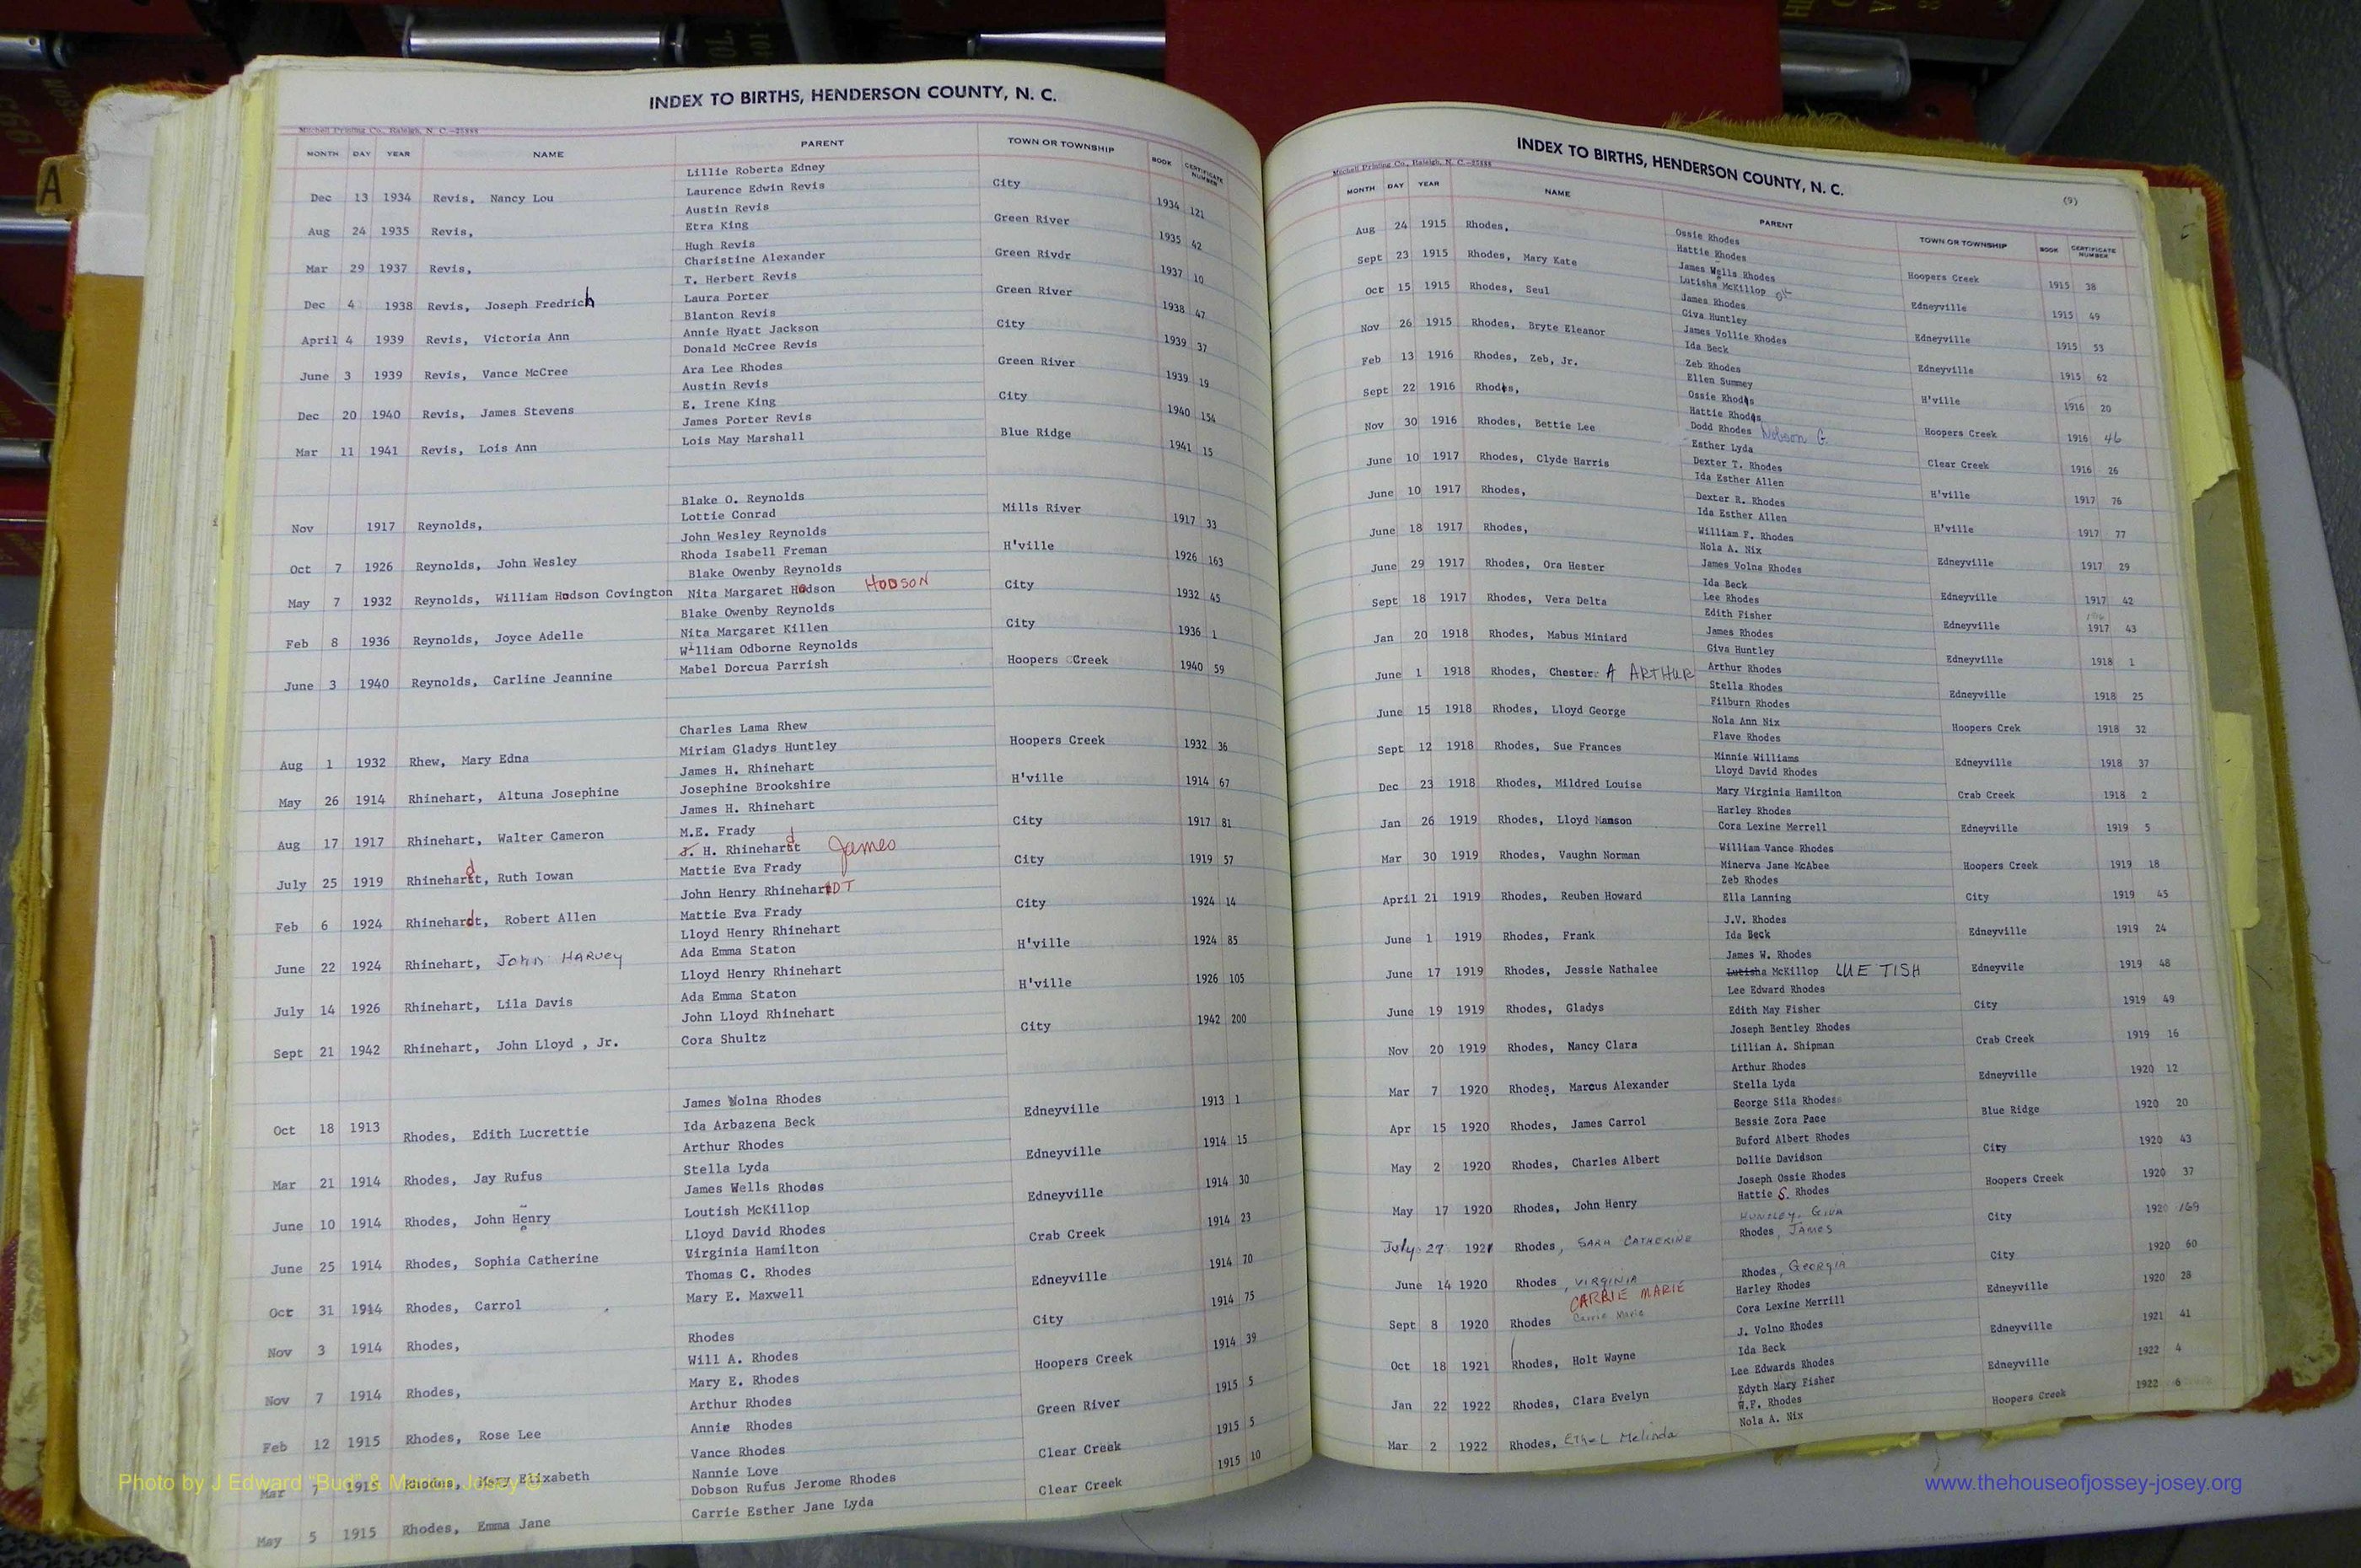 INDEX TO BIRTHS, HENDERSON COUNTY, N. C.
Mitchell Printing Co., Raleigh, N. C.—25888
MONTH DAY YEAR NAME PARENT TOWN OR TOWNSHIP BOOK CERTIFICATE NUMBER
Lillie Roberta Edney
Dec 13 1934 Revis, Nancy Lou Laurence Edwin Revis City 1934 121
Austin Revis
Aug 24 1935 Revis, Etra King Green River 1935 42
Hugh Revis
Mar 29 1937 Revis, Charistine Alexander Green Rivdr 1937 10
T. Herbert Revis
Dec 4 1938 Revis, Joseph Fredrich Laura Porter Green River 1938 47
Blanton Revis
April 4 1939 Revis, Victoria Ann Annie Hyatt Jackson City 1939 37
Donald McCree Revis
June 3 1939 Revis, Vance McCree Ara Lee Rhodes Green River 1939 19
Austin Revis
Dec 20 1940 Revis, James Stevens E. Irene King City 1940 154
James Porter Revis
Mar 11 1941 Revis, Lois Ann Lois May Marshall Blue Ridge 1941 15
Blake O. Reynolds
Nov 1917 Reynolds, Lottie Conrad Mills River 1917 33
John Wesley Reynolds
Oct 7 1926 Reynolds, John Wesley Rhoda Isabell Freman H'ville 1926 163
Blake Owenby Reynolds
May 7 1932 Reynolds, William Hodson Covington Nita Margaret Hodson HODSON City 1932 45
Blake Owenby Reynolds
Feb 8 1936 Reynolds, Joyce Adelle Nita Margaret Killen City 1936 1
William Odborne Reynolds
June 3 1940 Reynolds, Carline Jeannine Mabel Dorcua Parrish Hoopers CCreek 1940 59
Charles Lama Rhew
Aug 1 1932 Rhew, Mary Edna Miriam Gladys Huntley Hoopers Creek 1932 36
James H. Rhinehart
May 26 1914 Rhinehart, Altuna Josephine Josephine Brookshire H'ville 1914 67
James H. Rhinehart
Aug 17 1917 Rhinehart, Walter Cameron M.E. Frady City 1917 81
J. H. Rhinehardt James
July 25 1919 Rhinehardt, Ruth Iowan Mattie Eva Frady City 1919 57
John Henry RhineharDT
Feb 6 1924 Rhinehardt, Robert Allen Mattie Eva Frady City 1924 14
Lloyd Henry Rhinehart
June 22 1924 Rhinehart, John HARVEY Ada Emma Staton H'ville 1924 85
Lloyd Henry Rhinehart
July 14 1926 Rhinehart, Lila Davis Ada Emma Staton H'ville 1926 105
John Lloyd Rhinehart
Sept 21 1942 Rhinehart, John Lloyd , Jr. Cora Shultz City 1942 200
James Volna Rhodes
Oct 18 1913 Rhodes, Edith Lucrettie Ida Arbazena Beck Edneyville 1913 1
Arthur Rhodes
Mar 21 1914 Rhodes, Jay Rufus Stella Lyda Edneyville 1914 15
James Wells Rhodes
June 10 1914 Rhodes, John Henry Loutish McKillop Edneyville 1914 30
Lloyd David Rhodes
June 25 1914 Rhodes, Sophia Catherine Virginia Hamilton Crab Creek 1914 23
Thomas C. Rhodes
Oct 31 1914 Rhodes, Carrol Mary E. Maxwell Edneyville 1914 70
Nov 3 1914 Rhodes, Rhodes City 1914 75
Will A. Rhodes
Nov 7 1914 Rhodes, Mary E. Rhodes Hoopers Creek 1914 39
Arthur Rhodes
Feb 12 1915 Rhodes, Rose Lee Annie Rhodes Green River 1915 5
Vance Rhodes
Mar 7 1915 Rhodes, Mary Elizabeth Nannie Love Clear Creek 1915 5
Dobson Rufus Jerome Rhodes
May 5 1915 Rhodes, Emma Jane Carrie Esther Jane Lyda Clear Creek 1915 10
Photo by J Edward “Bud” & Marion Josey ©
INDEX TO BIRTHS, HENDERSON COUNTY, N. C.
Mitchell Printing Co., Raleigh, N. C.—25888
(9)
MONTH DAY YEAR NAME PARENT TOWN OR TOWNSHIP BOOK CERTIFICATE NUMBER
Ossie Rhodes
Aug 24 1915 Rhodes, Hattie Rhodes Hoopers Creek 1915 38
James Wells Rhodes
Sept 23 1915 Rhodes, Mary Kate Lutisha McKillop OK Edneyville 1915 49
James Rhodes
Oct 15 1915 Rhodes, Seul Giva Huntley Edneyville 1915 53
James Vollie Rhodes
Nov 26 1915 Rhodes, Bryte Eleanor Ida Beck Edneyville 1915 62
Zeb Rhodes
Feb 13 1916 Rhodes, Zeb, Jr. Ellen Summey H'ville 1916 20
Ossie Rhodes
Sept 22 1916 Rhodes, Hattie Rhodes Hoopers Creek 1916 46
Dodd Rhodes Dobson G
Nov 30 1916 Rhodes, Bettie Lee Esther Lyda Clear Creek 1916 26
Dexter T. Rhodes
June 10 1917 Rhodes, Clyde Harris Ida Esther Allen H'ville 1917 76
Dexter R. Rhodes
June 10 1917 Rhodes, Ida Esther Allen H'ville 1917 77
William F. Rhodes
June 18 1917 Rhodes, Nola A. Nix Edneyville 1917 29
James Volna Rhodes
June 29 1917 Rhodes, Ora Hester Ida Beck Edneyville 1917 42
Lee Rhodes
Sept 18 1917 Rhodes, Vera Delta Edith Fisher Edneyville 1917 43
James Rhodes
Jan 20 1918 Rhodes, Mabus Miniard Giva Huntley Edneyville 1918 1
Arthur Rhodes
June 1 1918 Rhodes, Chester A ARTHUR Stella Rhodes Edneyville 1918 25
Filburn Rhodes
June 15 1918 Rhodes, Lloyd George Nola Ann Nix Hoopers Crek 1918 32
Flave Rhodes
Sept 12 1918 Rhodes, Sue Frances Minnie Williams Edneyville 1918 37
Lloyd David Rhodes
Dec 23 1918 Rhodes, Mildred Louise Mary Virginia Hamilton Crab Creek 1918 2
Harley Rhodes
Jan 26 1919 Rhodes, Lloyd Manson Cora Lexine Merrell Edneyville 1919 5
William Vance Rhodes
Mar 30 1919 Rhodes, Vaughn Norman Minerva Jane McAbee Hoopers Creek 1919 18
Zeb Rhodes
April 21 1919 Rhodes, Reuben Howard Ella Lanning City 1919 45
J.V. Rhodes
June 1 1919 Rhodes, Frank Ida Beck Edneyville 1919 24
James W. Rhodes
June 17 1919 Rhodes, Jessie Nathalee Lutisha McKillop LUE TISH Edneyvile 1919 48
Lee Edward Rhodes
June 19 1919 Rhodes, Gladys Edith May Fisher City 1919 49
Joseph Bentley Rhodes
Nov 20 1919 Rhodes, Nancy Clara Lillian A. Shipman Crab Creek 1919 16
Arthur Rhodes
Mar 7 1920 Rhodes, Marcus Alexander Stella Lyda Edneyville 1920 12
George Sila Rhodes
Apr 15 1920 Rhodes, James Carrol Bessie Zora Pace Blue Ridge 1920 20
Buford Albert Rhodes
May 2 1920 Rhodes, Charles Albert Dollie Davidson City 1920 43
Joseph Ossie Rhodes
May 17 1920 Rhodes, John Henry Hattie S. Rhodes Hoopers Creek 1920 37
HUNTLEY, GIVA
July 27 1921 Rhodes, SARA CATHERINE Rhodes, JAMES City 1920 169
June 14 1920 Rhodes, VIRGINIA Rhodes, GEORGIA City 1920 60
CARRIE MARIE Harley Rhodes
Sept 8 1920 Rhodes Carrie Marie Cora Lexine Merrill Edneyville 1920 28
J. Volno Rhodes
Oct 18 1921 Rhodes, Holt Wayne Ida Beck Edneyville 1921 41
Lee Edwards Rhodes
Jan 22 1922 Rhodes, Clara Evelyn Edyth Mary Fisher Edneyville 1922 4
W.F. Rhodes
Mar 2 1922 Rhodes, Ethel Melinda Nola A. Nix Hoopers Creek 1922 6
www.thehouseofjossey-josey.org
A